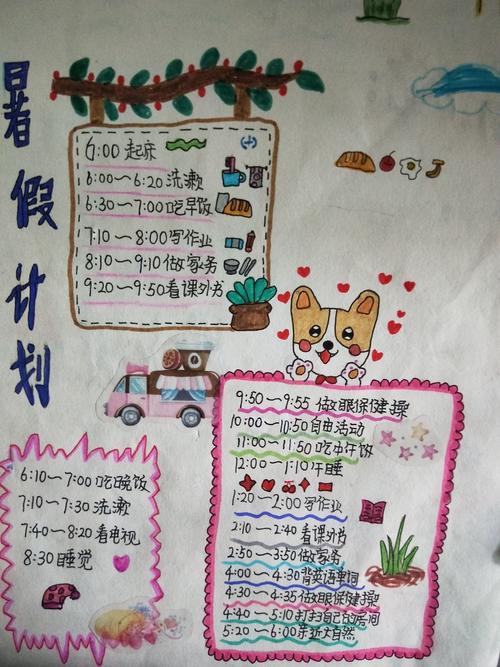 暑假计划
6:00 起床
6:00～6:20 洗漱
6:30～7:00吃早饭
7:10～8:00写作业
8:10～9:10做家务
9:20～9:50看课外书
9:50～9:55 做眼保健操
10:00～10:50自由活动
11:00～11:50吃中午饭
12:00～1:10午睡
1:20～2:00写作业
2:10～2:40看课外书
2:50～3:50做家务
4:00～4:30背英语单词
4:30～4:35做眼保健操
4:40～5:10打扫自己的房间
5:20～6:00亲近大自然
6:10～7:00吃晚饭
7:10～7:30洗漱
7:40～8:20看电视
8:30睡觉